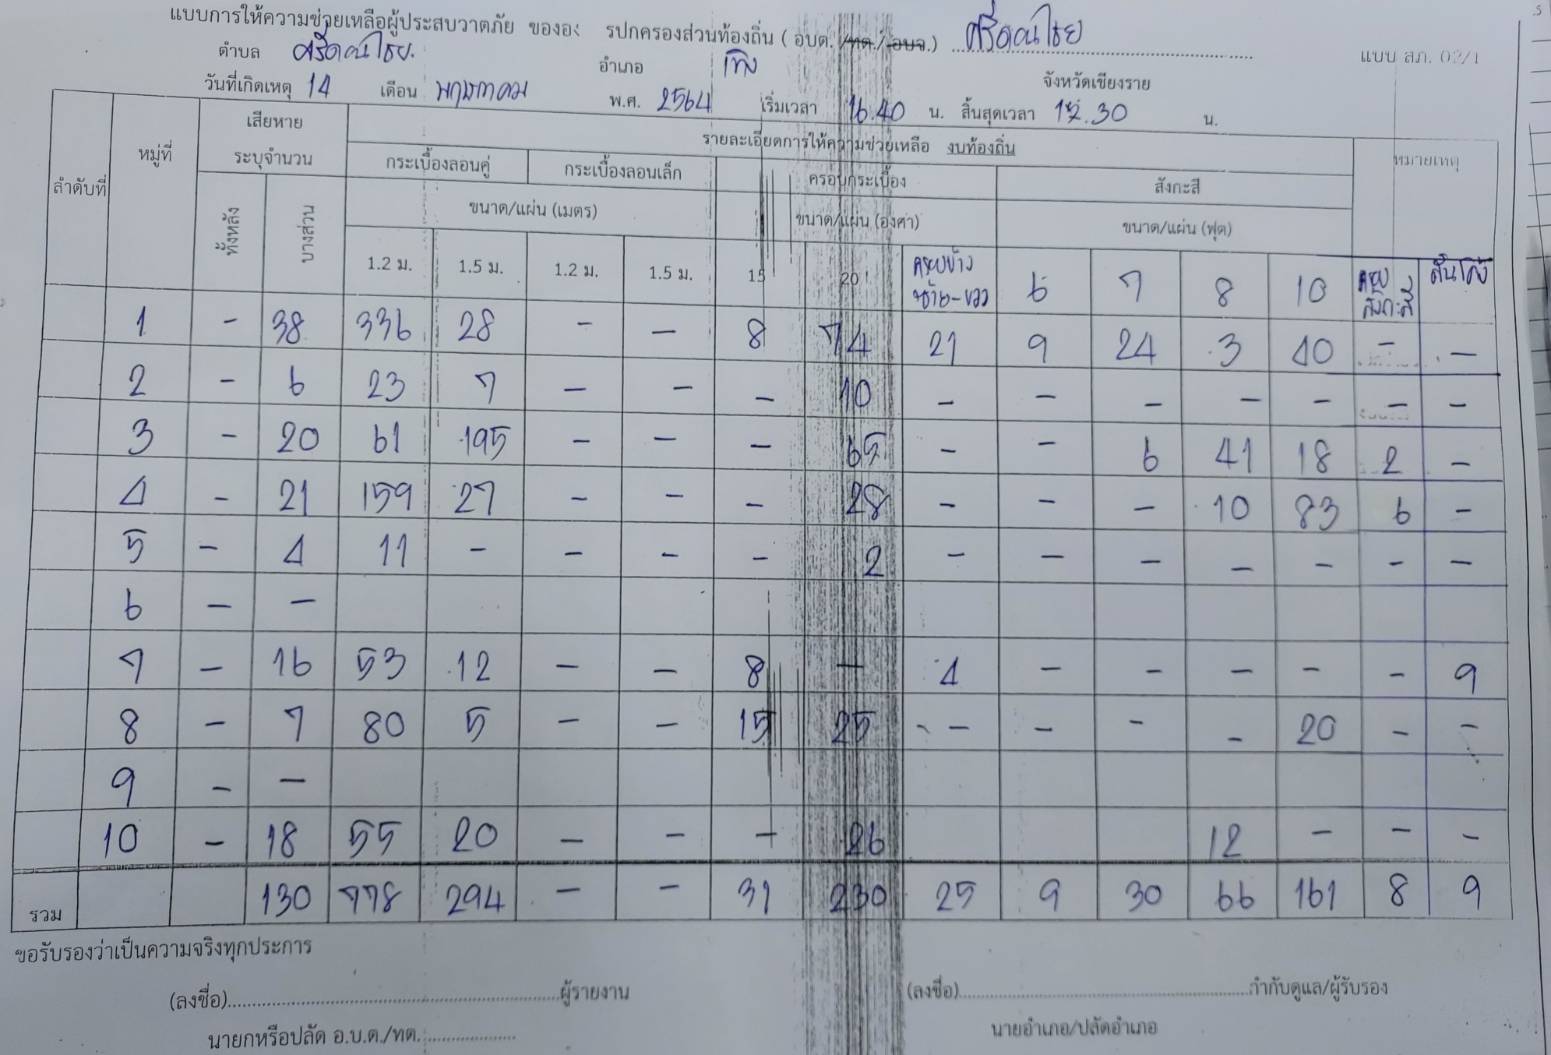 แบบการให้ความช่วยเหลือผู้ประสบวาตภัย ขององ รปกครองส่วนท้องถิ่น ( อบต. /ทต./ อบจ.) ศรีดอนไชย
แบบ สภ. 02/1
ตำบล ศรีดอนไชย. อำเภอ เทิง จังหวัดเชียงราย
วันที่เกิดเหตุ 14 เดือน พฤษภาคม พ.ศ. 2564 เริ่มเวลา 16.40 น. สิ้นสุดเวลา 17.30 น.
ลำดับที่ หมู่ที่ เสียหาย รายละเอียดการให้ความช่วยเหลือ งบท้องถิ่น หมายเหตุ
ระบุจำนวน กระเบื้องลอนคู่ กระเบื้องลอนเล็ก ครอบกระเบื้อง สังกะสี
ทั้งหลัง บางส่วน ขนาด/แผ่น (เมตร) ขนาด/แผ่น (องศา) ขนาด/แผ่น (ฟุต)
1.2 ม. 1.5 ม. 1.2 ม. 1.5 ม. 15 20 ครอบข้าง ซ้าย-ขวา 6 7 8 10 ครอบ สังกะสี สันโค้ง
1 - 38 336 28 - - 8 74 21 9 24 3 40 - -
2 - 6 23 7 - - - 10 - - - - - - -
3 - 20 61 195 - - - 65 - - 6 41 18 2 -
4 - 21 159 27 - - - 28 - - - 10 83 6 -
5 - 4 11 - - - - 2 - - - - - - -
6 - -
7 - 16 53 12 - - 8 - 4 - - - - - 9
8 - 7 80 5 - - 15 25 - - - - 20 - -
9 - -
10 - 18 55 20 - - - 26 12 - - -
รวม 130 778 294 - - 31 230 25 9 30 66 161 8 9
ขอรับรองว่าเป็นความจริงทุกประการ
(ลงชื่อ)..........ผู้รายงาน (ลงชื่อ)..........กำกับดูแล/ผู้รับรอง
นายกหรือปลัด อ.บ.ต./ทต........... นายอำเภอ/ปลัดอำเภอ